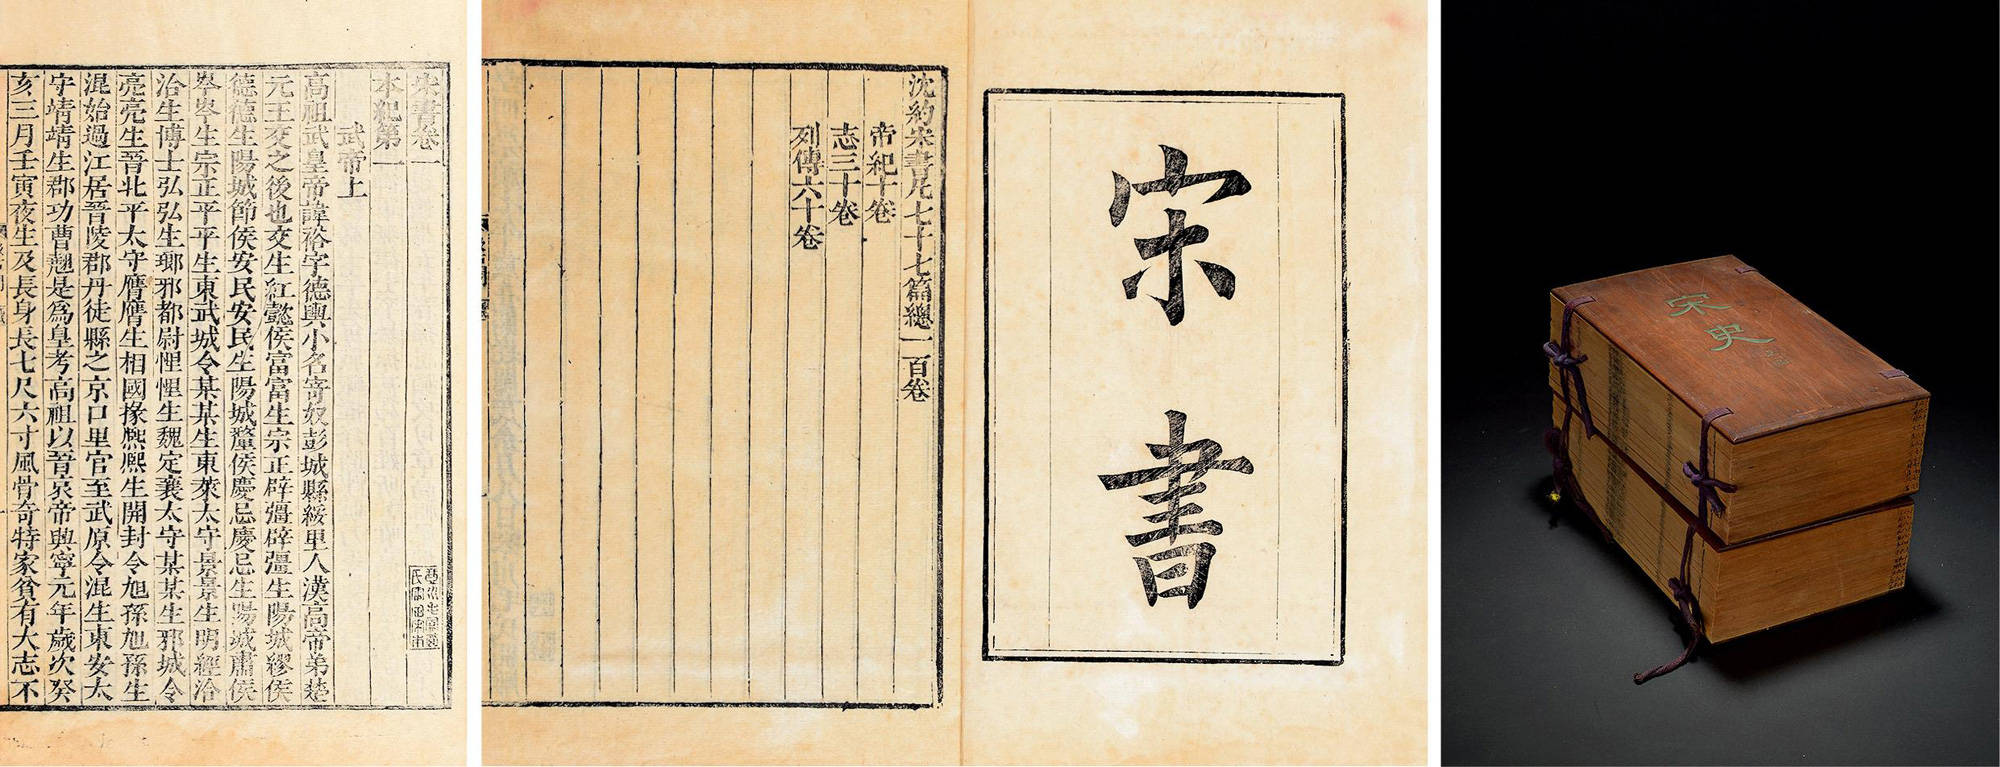 宋書卷一
本紀第一
武帝上
高祖武皇帝諱裕字德輿小名寄奴彭城縣綏里人漢高帝弟楚
元王交之後也交生紅懿侯富富生宗正辟彊辟彊生陽城繆侯
德德生陽城節侯安民安民生陽城釐侯慶忌慶忌生陽城肅侯
岑岑生宗正平平生東武城令某某生東萊太守景景生明經洽
洽生博士弘弘生瑯邪都尉悝悝生魏定襄太守某某生邪城令
亮亮生晉北平太守膺膺生相國掾熙熙生開封令旭孫旭孫生
混始過江居晉陵郡丹徒縣之京口里官至武原令混生東安太
守靖靖生郡功曹翹是爲皇考高祖以晉哀帝興寧元年歲次癸
亥三月壬寅夜生及長身長七尺六寸風骨奇特家貧有大志不
宋書
沈約宋書凡七十七篇總一百卷
帝紀十卷
志三十卷
列傳六十卷
宋史